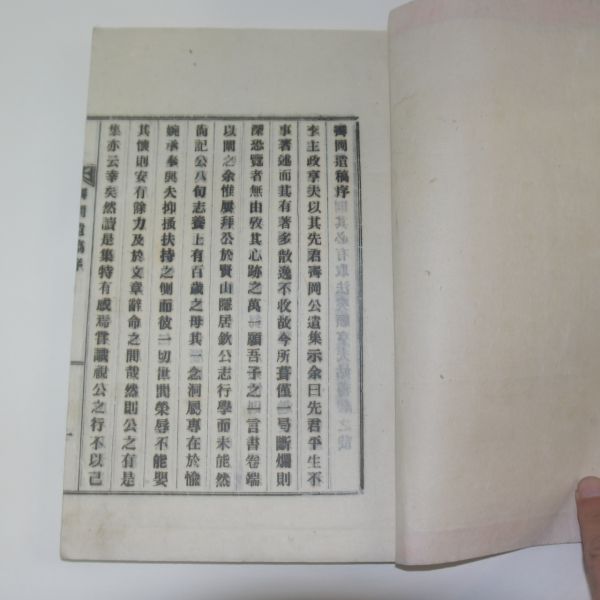 壽岡遺稿序
李主政亨夫以其先君壽岡公遺集示余曰先君平生不
事著述而其有著多散逸不收故今所葺僅一弓斷爛則
深恐覽者無由攷其心跡之萬一願吾子之一言書卷端
以闡之余惟屢拜公於賢山隱居欽公志行學而未能然
尙記公八旬志養上有百歲之母其一念洞屬專在於愉
婉承奉與夫抑搔扶持之側而彼一切世間榮辱不能嬰
其懷則安有餘力及於文章辭命之間哉然則公之有是
集亦云幸矣然讀是集特有感焉嘗讖視公之行不以己
壽岡遺稿序
一